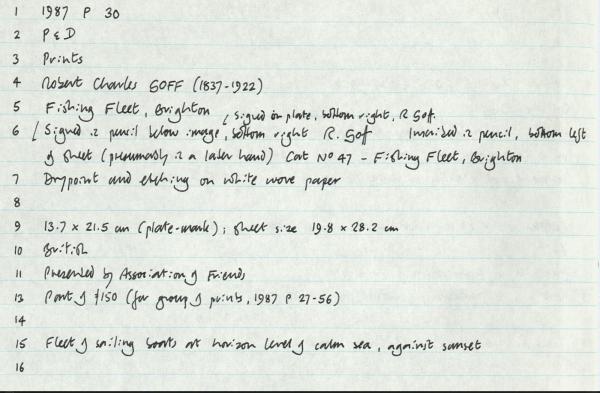 1 1987 P 30
2 P & D
3 Prints
4 Robert Charles GOFF (1837-1922)
5 Fishing Fleet, Brighton / signed on plate, bottom right, R. Goff.
6 / Signed in pencil below image, bottom right R. Goff Inscribed in pencil, bottom left
of sheet (presumably in a later hand) Cat No 47 - Fishing Fleet, Brighton
7 Drypoint and etching on white wove paper
8
9 13.7 x 21.5 cm (plate-mark); sheet size 19.8 x 28.2 cm
10 British
11 Presented by Association of Friends
13 Part of £150 (for group of prints, 1987 P 27-56)
14
15 Fleet of sailing boats at horizon level of calm sea, against sunset
16